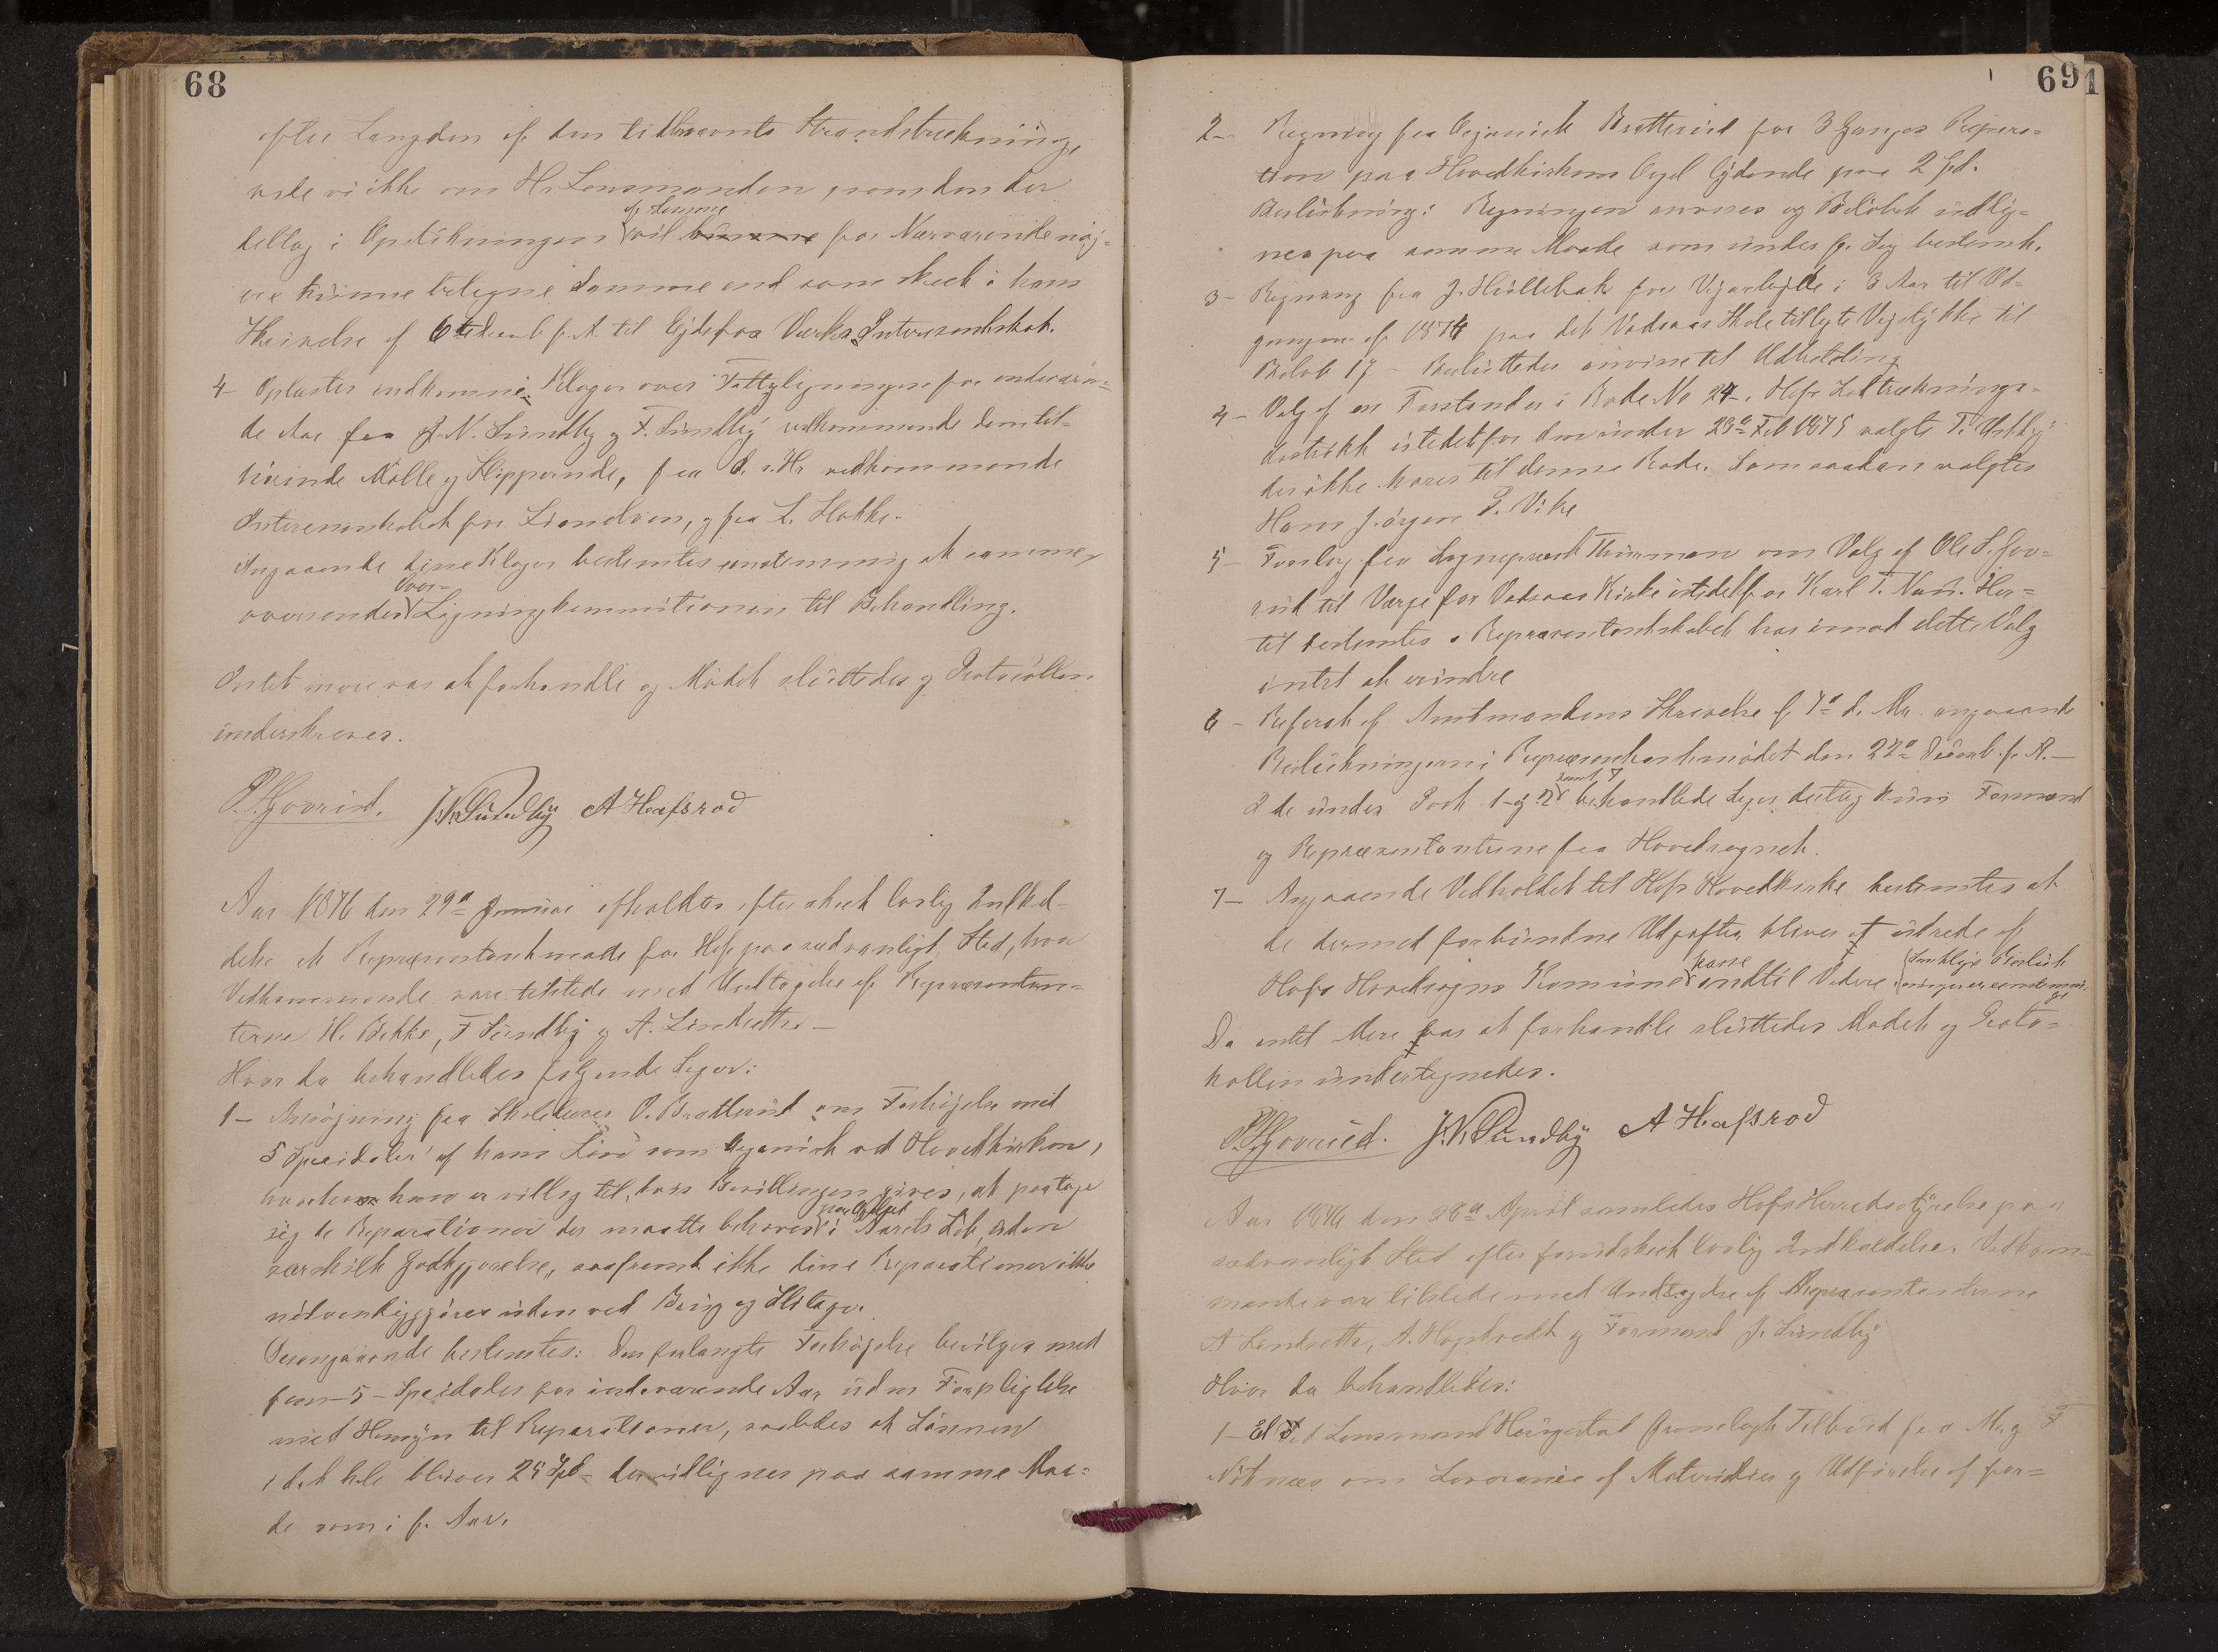 68
efter Længden af den tilkrævnte Strandstrækning,
vide vi ikke om Hr Lensmanden, som den der
deltog i Opstikningen af samme vil for Nærværende nøj-
ere kunne betegne samme end som skeet i hans
Skrivelse af 6te f. A. til Ejdsfos Værks Interessentskab.
4 - Oplæstes indkomne Klager over Fattigligningen for indeværen-
de Aar fra J. N. Sundby og F. Sundby vedkommende dem til-
hørende Mølle og, fra vedkommende
Interessentskabet for, og fra L. Hokke.
Angaaende disse Klager bestemtes enstemmig at samme
oversendes Over-Ligningskommitionen til Behandling.
Intet mere var at forhandle og Mødet sluttedes og Protocollen
underskreves.
P. Hjovrud. J. N. Sundby A Hafsrod
Aar 1876 den 29de Januar afholdtes efter skeet lovlig Indkal-
delse et Repræsentantmøde for Hof paa sædvanligt Sted, hvor
Vedkommende vare tilstede med Undtagelse af Repræsentan-
terne H. Bakke, F Sundby og A. Lindsette. -
Hvor da behandledes følgende Sager:
1 - Ansøgning fra Skolelærer O. Bratterud om Forhøjelse med
5 Speidaler af hans Løn som Organist ved Hovedkirken,
hvorhos han er villig til, hvis Bevillingen gives, at paatage
sig de Reparationer der maatte behøves paa Orgelet i Aarets Løb, uden
særskilt Godtgjørelse, saafremt ikke disse Reparationer ikke
nødvendiggjøres uden ved Brug og Slitage.
Desangaaende bestemtes: Den forlangte Forhøjelse bevilges med
fem - 5 - Speidaler for indeværende Aar, uden Forpligtelse
med Hensyn til Reparationer, saaledes at Lønnen
i det hele bliver 25 Spd - der udlignes paa samme Maa-
de som i f. Aar.
691
2 - Regning fra Organist Bratterud for 3 Ganges Repera-
tion paa Hovedkirkens Orgel lydende paa 2 Spd.
Beslutning: Regningen anvises og Beløbet udlig-
nes paa samme Maade som under f. Sag bestemt.
3 - Regning fra J. Hullebak for Vejarbejde i 3 Aar til Ud-
gangen af 1874 paa det Vadsaas Skole tillagte Vejstykke til
Beløb - Besluttedes anvine til Udbetaling
4 - Valg af en Forstander i Rode No 24. Hofs Lodtrækninga-
distrikt istedetfor den under 23de Feb 1875 valgte T.
der ikke hører til denne Rode. Som saadan valgtes
Hans Jørgen P. Vike
5 - Forslag fra Sognepræst Thurman om Valg af Ole S. Gov-
rud til Værge for Vadsaas Kirke istedetfor Karl T. Her-
til bestemtes: Repræsentantskabet har imod dette Valg
intet at erindre
6 - Referat af Amtmandens Skrivelse af 7de d. M. angaaende
Beslutningerne i Repræsentantmødet den 22de Decemb. f. A. -
I de under Post 1 - og 2 samt 7 behandlede Sager deltog kun Formand
og Repræsentanterne fra Hovedsognet.
7 - Angaaende Vedholdet til Hofs Hovedkirke bestemtes at
de dermed forbundne Udgifter bliver at udrede af
Hofs Hovedsogns Kommunekasse indtil Videre. Samtlige Beslut
ninger ere enstemmi-
ge
Da intet Mere var at forhandle sluttedes Mødet og Proto-
kollen undertegnedes.
P. Hjovrud. J. N. Sundby A Hafsrod
Aar 1876 den 28de April samledes Hofs Herredsstyrelse paa
sædvanligt Sted efter forudskeet lovlig Indkaldelse. Vedkom-
mende vare tilstede med Undtagelse af Repræsentanterne
A Lindsette, A. Hagstvedt og Formand J. Sundby
Hvor da behandledes:
1 - Et ved Lensmand fremlagt Tilbud fra M. og F
om Leverance af Materialier og Udførelse af for-